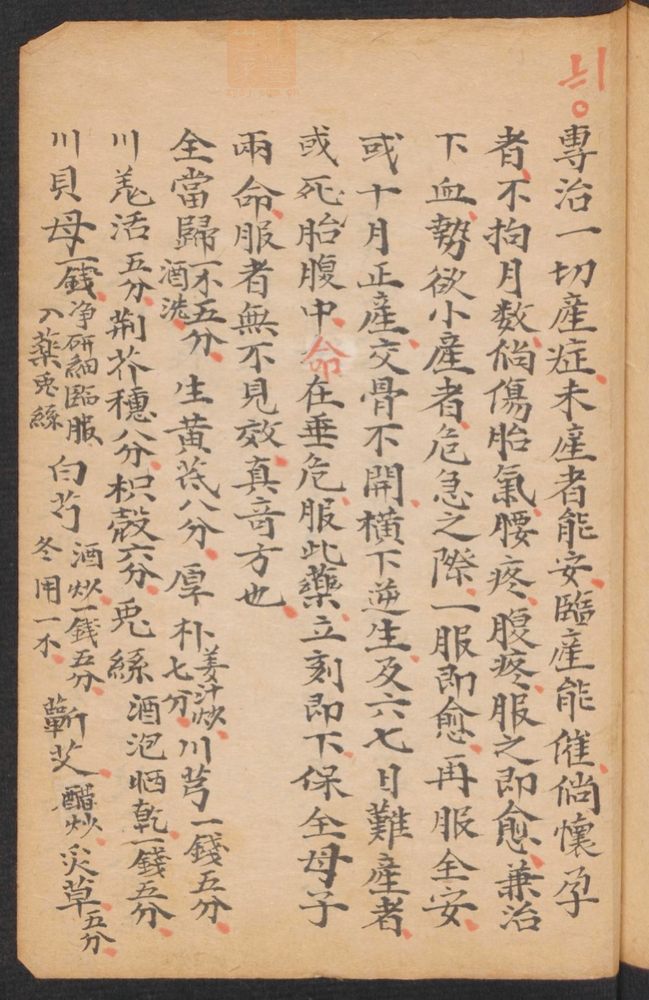 專治一切產症未產者能安臨產能催倘懷孕
者不拘月数倘傷胎氣腰疼腹疼服之即愈兼治
下血勢欲小產者危急之際一服即愈再服全安
或十月正產交骨不開橫下逆生及六七日難產者
或死胎腹中命在垂危服此藥立刻即下保全母子
兩命服者無不見效真竒方也
全當歸一不五分酒洗生黄芪八分厚朴姜汁炒七分川芎一錢五分
川羌活五分荊芥穗八分枳殼六分兎絲酒泡晒乾一錢五分
川貝母一錢净研細臨服入藥兎絲白芍酒炒一錢五分冬用一不蘄艾醋炒炙草五分